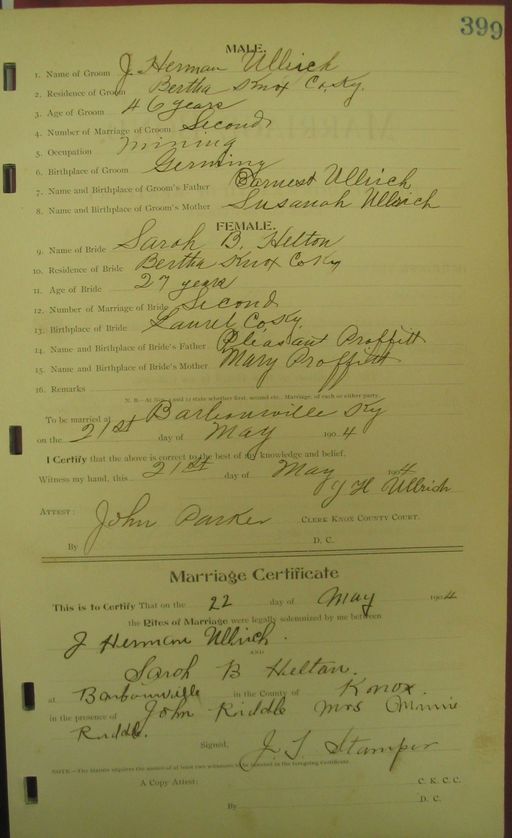 399
MALE.
1. Name of Groom J. Herman Ullrich
2. Residence of Groom Bertha Knox Co, Ky.
3. Age of Groom 46 years
4. Number of Marriage of Groom Second
5. Occupation Mining
6. Birthplace of Groom Germiny
7. Name and Birthplace of Groom's Father Earnest Ullrich
8. Name and Birthplace of Groom's Mother Susanah Ullrich
FEMALE.
9. Name of Bride Sarah B. Helton
10. Residence of Bride Bertha Knox Co Ky
11. Age of Bride 27 years
12. Number of Marriage of Bride Second
13. Birthplace of Bride Laurel Co, Ky.
14. Name and Birthplace of Bride's Father Pleasant Proffitt
15. Name and Birthplace of Bride's Mother Mary Proffitt
16. Remarks
N. B.—At Nos. 4 and 12 state whether first, second etc., Marriage, of each or either party.
To be married at Barbourville Ky
on the 21st day of May 1904
I Certify that the above is correct to the best of my knowledge and belief.
Witness my hand, this 21st day of May 1904
J H Ullrich
ATTEST: John Parker CLERK KNOX COUNTY COURT.
By D. C.
Marriage Certificate
This is to Certify That on the 22 day of May 1904
the Rites of Marriage were legally solemnized by me between
J Herman Ullrich.
AND
Sarah B Heltan.
at Barbourville in the County of Knox.
in the presence of John Riddle Mrs Minnie
Riddle.
Signed, J. T. Stamper
NOTE.—The Statute requires the names of at least two witnesses to be inserted in the foregoing Certificate.
A Copy Attest: C. K. C. C.
By D. C.